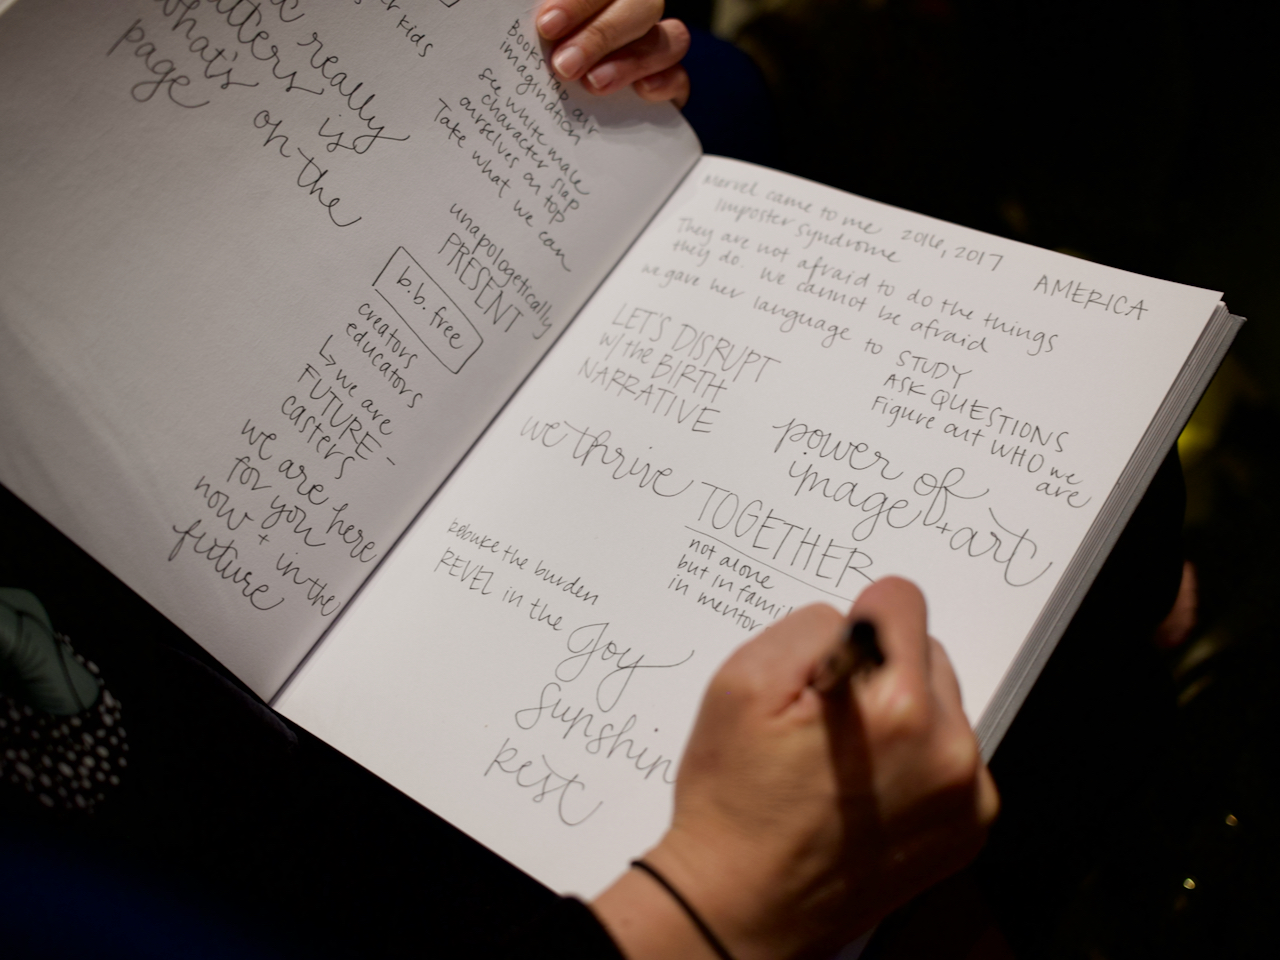 really
what's is
page on the
kids
Books
imagination
see white male
character slap
ourselves on top
Take what we can
unapologetically
PRESENT
b.b. free
creators
educators
↳ we are
FUTURE-
casters
we are here
for you
now + in the
future
Marvel came to me 2016, 2017
Imposter syndrome
AMERICA
They are not afraid to do the things
they do. We cannot be afraid
we gave her language to STUDY
ASK QUESTIONS
Figure out WHO we
are
LET'S DISRUPT
w/ the BIRTH
NARRATIVE
power of
image + art
we thrive TOGETHER
not alone
but in famil
in mentor
rebuke the burden
REVEL in the Joy
Sunshin
Rest